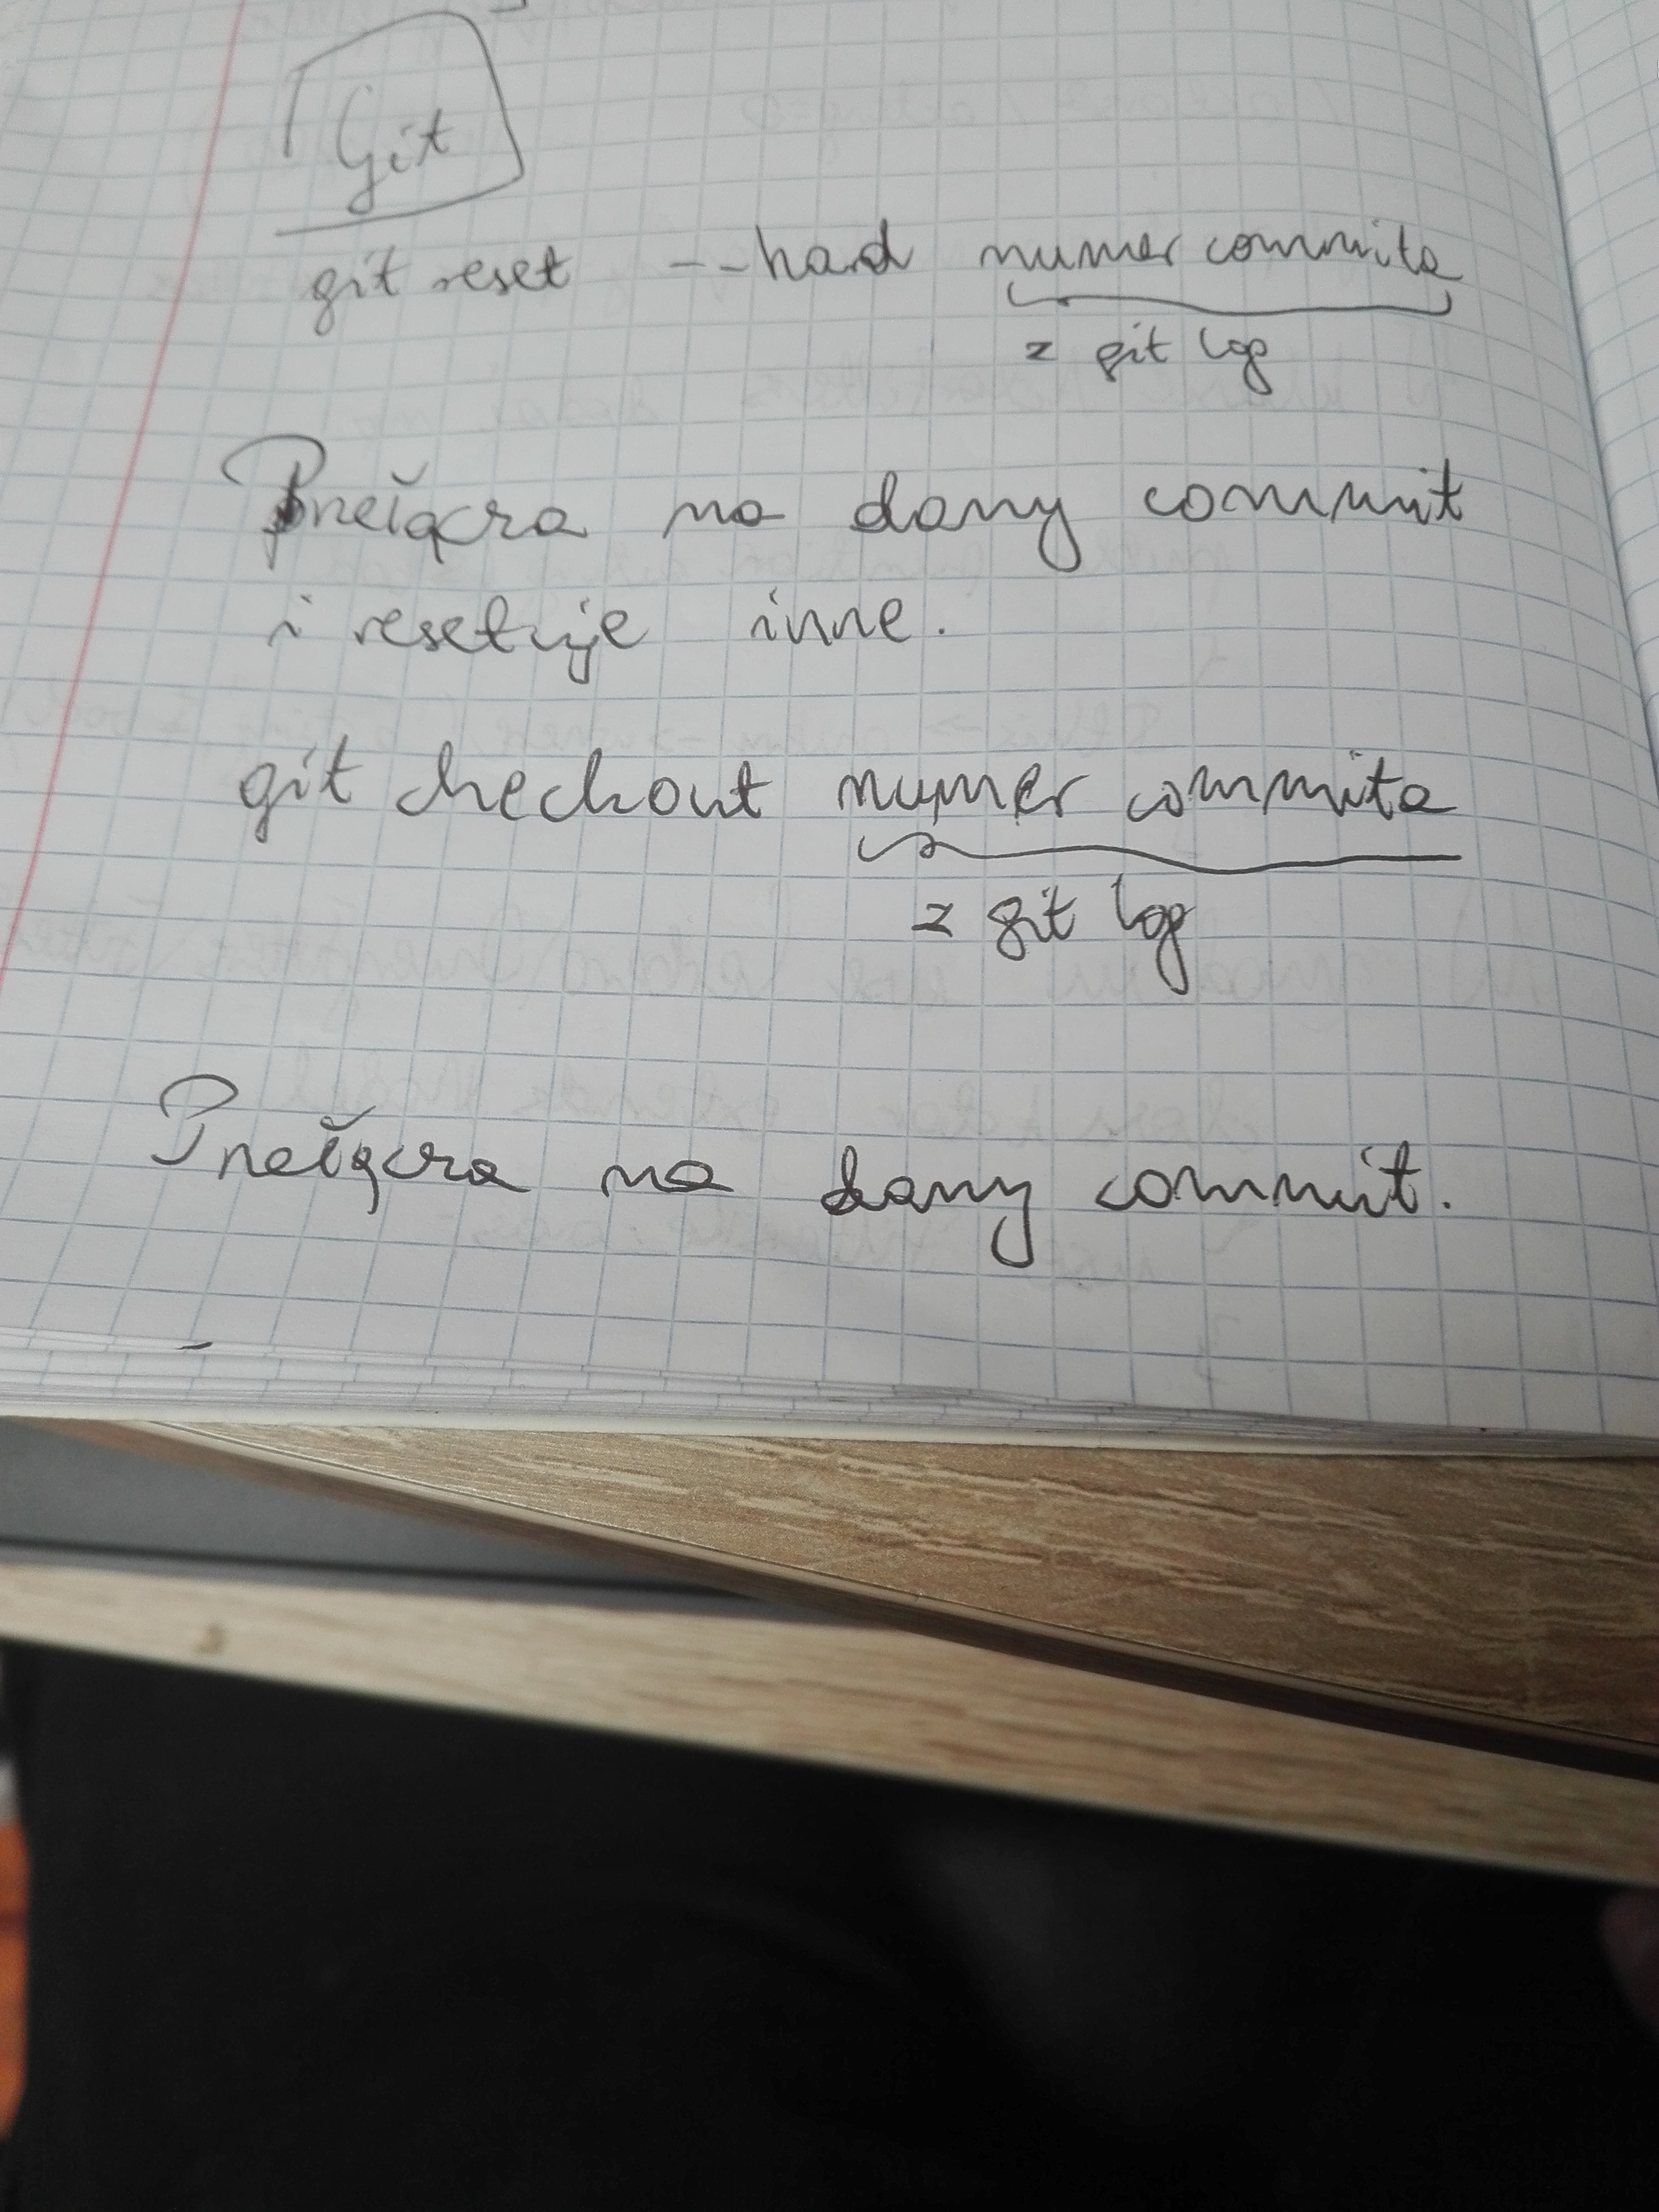 Git
git reset --hard numer commita
z git log
Przełącza na dany commit
i resetuje inne.
git checkout numer commita
z git log
Przełącza na dany commit.